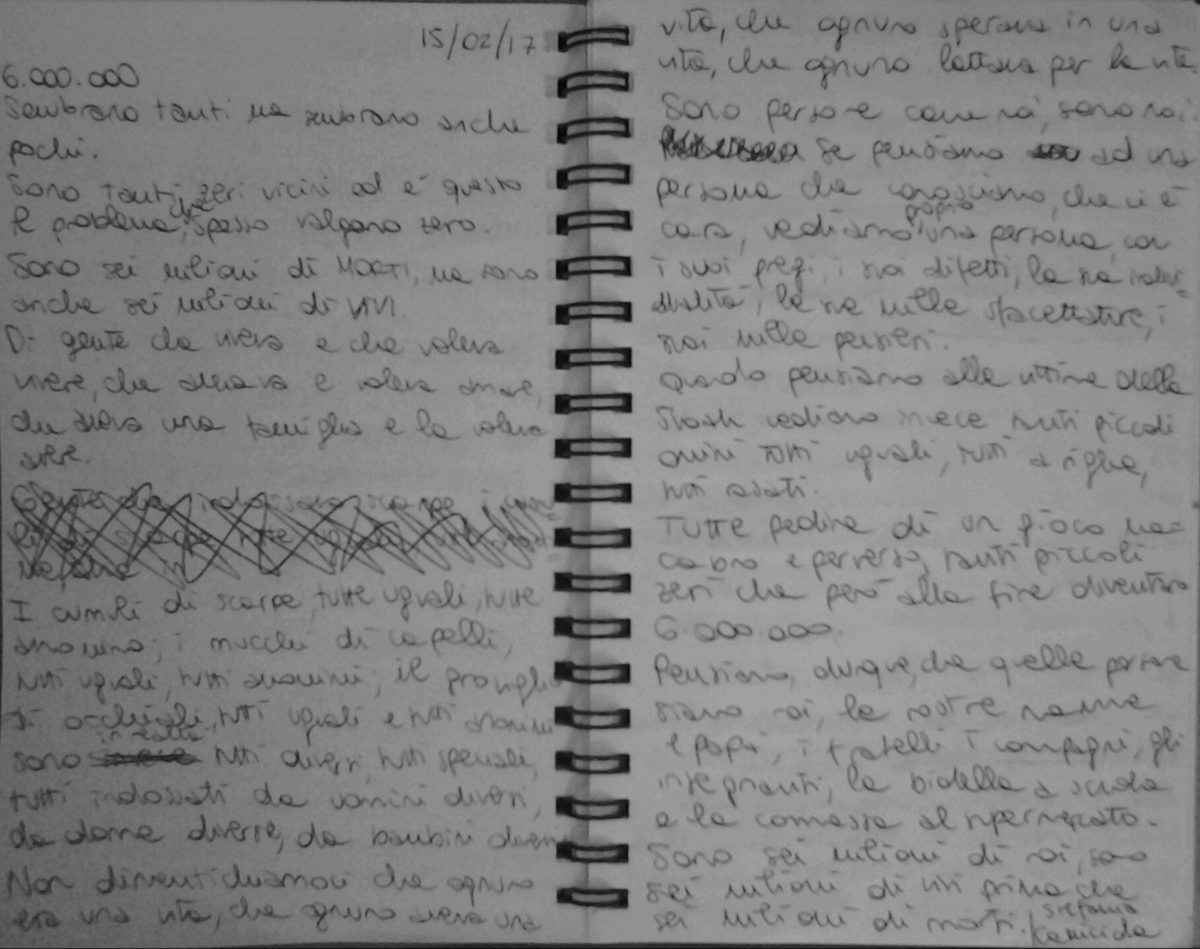 15/02/17
6.000.000
Sembrano tanti ma sembrano anche
pochi.
Sono tanti zeri vicini ed è questo
il problema, che spesso valgono zero.
Sono sei milioni di MORTI, ma sono
anche sei milioni di VIVI.
Di gente che viveva e che voleva
vivere, che amava e voleva amare,
che aveva una famiglia e la voleva
avere.
I cumuli di scarpe, tutte uguali, tutte
anonime; i mucchi di capelli,
tutti uguali, tutti anonimi; il groviglio
di occhiali, tutti uguali e tutti anonimi
sono in realtà tutti diversi, tutti speciali,
tutti indossati da uomini diversi,
da donne diverse, da bambini diversi
Non dimentichiamoci che ognuno
era una vita, che ognuno aveva una
vita, che ognuno sperava in una
vita, che ognuno lottava per la vita.
Sono persone come noi, sono noi.
Se pensiamo ad una
persona che conosciamo, che ci è
cara, vediamo proprio una persona, con
i suoi pregi, i suoi difetti, la sua indivi-
dualità, le sue mille sfaccettature, i
suoi mille pensieri.
Quando pensiamo alle vittime della
Shoah vediamo invece tanti piccoli
omini tutti uguali, tutti a righe,
tutti
Tutte pedine di un gioco ma-
cabro e perverso, tanti piccoli
zeri che però alla fine diventano
6.000.000.
Pensiamo, dunque, che quelle persone
siano noi, le nostre mamme
e papà, i fratelli i compagni, gli
insegnanti, la bidella a scuola
e la commessa al supermercato.
Sono sei milioni di noi, sono
sei milioni di vivi prima che
sei milioni di morti.
Stefania